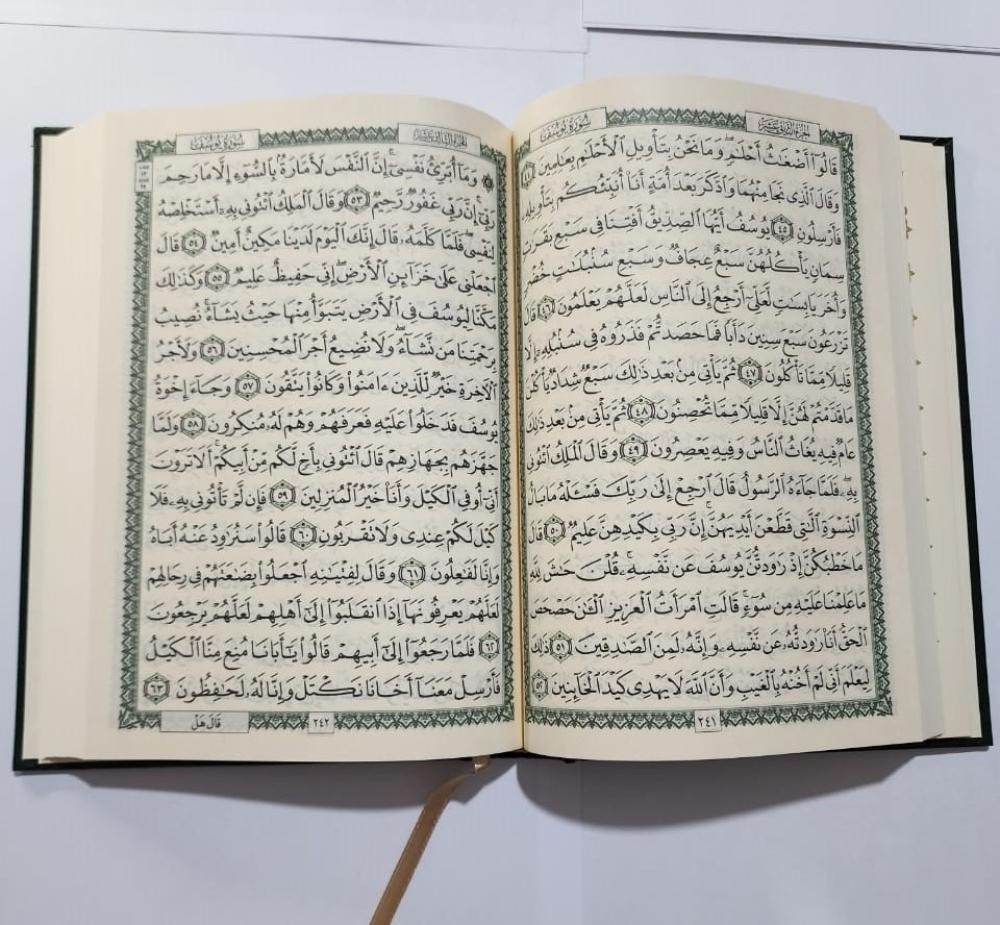 الجزء الثاني عشر
سورة يوسف
قَالُوٓا۟ أَضْغَٰثُ أَحْلَٰمٍۢ ۖ وَمَا نَحْنُ بِتَأْوِيلِ ٱلْأَحْلَٰمِ بِعَٰلِمِينَ ٤٤
وَقَالَ ٱلَّذِى نَجَا مِنْهُمَا وَٱدَّكَرَ بَعْدَ أُمَّةٍ أَنَا۠ أُنَبِّئُكُم بِتَأْوِيلِهِۦ
فَأَرْسِلُونِ ٤٥ يُوسُفُ أَيُّهَا ٱلصِّدِّيقُ أَفْتِنَا فِى سَبْعِ بَقَرَٰتٍۢ
سِمَانٍۢ يَأْكُلُهُنَّ سَبْعٌ عِجَافٌۭ وَسَبْعِ سُنۢبُلَٰتٍ خُضْرٍۢ
وَأُخَرَ يَابِسَٰتٍۢ لَّعَلِّىٓ أَرْجِعُ إِلَى ٱلنَّاسِ لَعَلَّهُمْ يَعْلَمُونَ ٤٦ قَالَ
تَزْرَعُونَ سَبْعَ سِنِينَ دَأَبًۭا فَمَا حَصَدتُّمْ فَذَرُوهُ فِى سُنۢبُلِهِۦٓ إِلَّا
قَلِيلًۭا مِّمَّا تَأْكُلُونَ ٤٧ ثُمَّ يَأْتِى مِنۢ بَعْدِ ذَٰلِكَ سَبْعٌۭ شِدَادٌۭ يَأْكُلْنَ
مَا قَدَّمْتُمْ لَهُنَّ إِلَّا قَلِيلًۭا مِّمَّا تُحْصِنُونَ ٤٨ ثُمَّ يَأْتِى مِنۢ بَعْدِ ذَٰلِكَ
عَامٌۭ فِيهِ يُغَاثُ ٱلنَّاسُ وَفِيهِ يَعْصِرُونَ ٤٩ وَقَالَ ٱلْمَلِكُ ٱئْتُونِى
بِهِۦ ۖ فَلَمَّا جَآءَهُ ٱلرَّسُولُ قَالَ ٱرْجِعْ إِلَىٰ رَبِّكَ فَسْـَٔلْهُ مَا بَالُ
ٱلنِّسْوَةِ ٱلَّٰتِى قَطَّعْنَ أَيْدِيَهُنَّ ۚ إِنَّ رَبِّى بِكَيْدِهِنَّ عَلِيمٌۭ ٥٠ قَالَ
مَا خَطْبُكُنَّ إِذْ رَٰوَدتُّنَّ يُوسُفَ عَن نَّفْسِهِۦ ۚ قُلْنَ حَٰشَ لِلَّهِ
مَا عَلِمْنَا عَلَيْهِ مِن سُوٓءٍۢ ۚ قَالَتِ ٱمْرَأَتُ ٱلْعَزِيزِ ٱلْـَٰٔنَ حَصْحَصَ
ٱلْحَقُّ أَنَا۠ رَٰوَدتُّهُۥ عَن نَّفْسِهِۦ وَإِنَّهُۥ لَمِنَ ٱلصَّٰدِقِينَ ٥١ ذَٰلِكَ
لِيَعْلَمَ أَنِّى لَمْ أَخُنْهُ بِٱلْغَيْبِ وَأَنَّ ٱللَّهَ لَا يَهْدِى كَيْدَ ٱلْخَآئِنِينَ ٥٢
٢٤١
الجزء الثالث عشر
سورة يوسف
۞ وَمَآ أُبَرِّئُ نَفْسِىٓ ۚ إِنَّ ٱلنَّفْسَ لَأَمَّارَةٌۢ بِٱلسُّوٓءِ إِلَّا مَا رَحِمَ
رَبِّىٓ ۚ إِنَّ رَبِّى غَفُورٌۭ رَّحِيمٌۭ ٥٣ وَقَالَ ٱلْمَلِكُ ٱئْتُونِى بِهِۦٓ أَسْتَخْلِصْهُ
لِنَفْسِى ۖ فَلَمَّا كَلَّمَهُۥ قَالَ إِنَّكَ ٱلْيَوْمَ لَدَيْنَا مَكِينٌ أَمِينٌۭ ٥٤ قَالَ
ٱجْعَلْنِى عَلَىٰ خَزَآئِنِ ٱلْأَرْضِ ۖ إِنِّى حَفِيظٌ عَلِيمٌۭ ٥٥ وَكَذَٰلِكَ
مَكَّنَّا لِيُوسُفَ فِى ٱلْأَرْضِ يَتَبَوَّأُ مِنْهَا حَيْثُ يَشَآءُ ۚ نُصِيبُ
بِرَحْمَتِنَا مَن نَّشَآءُ ۖ وَلَا نُضِيعُ أَجْرَ ٱلْمُحْسِنِينَ ٥٦ وَلَأَجْرُ
ٱلْـَٔاخِرَةِ خَيْرٌۭ لِّلَّذِينَ ءَامَنُوا۟ وَكَانُوا۟ يَتَّقُونَ ٥٧ وَجَآءَ إِخْوَةُ
يُوسُفَ فَدَخَلُوا۟ عَلَيْهِ فَعَرَفَهُمْ وَهُمْ لَهُۥ مُنكِرُونَ ٥٨ وَلَمَّا
جَهَّزَهُم بِجَهَازِهِمْ قَالَ ٱئْتُونِى بِأَخٍۢ لَّكُم مِّنْ أَبِيكُمْ ۚ أَلَا تَرَوْنَ
أَنِّىٓ أُوفِى ٱلْكَيْلَ وَأَنَا۠ خَيْرُ ٱلْمُنزِلِينَ ٥٩ فَإِن لَّمْ تَأْتُونِى بِهِۦ فَلَا
كَيْلَ لَكُمْ عِندِى وَلَا تَقْرَبُونِ ٦٠ قَالُوا۟ سَنُرَٰوِدُ عَنْهُ أَبَاهُ
وَإِنَّا لَفَٰعِلُونَ ٦١ وَقَالَ لِفِتْيَٰنِهِ ٱجْعَلُوا۟ بِضَٰعَتَهُمْ فِى رِحَالِهِمْ
لَعَلَّهُمْ يَعْرِفُونَهَآ إِذَا ٱنقَلَبُوٓا۟ إِلَىٰٓ أَهْلِهِمْ لَعَلَّهُمْ يَرْجِعُونَ
٦٢ فَلَمَّا رَجَعُوٓا۟ إِلَىٰٓ أَبِيهِمْ قَالُوا۟ يَٰٓأَبَانَا مُنِعَ مِنَّا ٱلْكَيْلُ
فَأَرْسِلْ مَعَنَآ أَخَانَا نَكْتَلْ وَإِنَّا لَهُۥ لَحَٰفِظُونَ ٦٣
٢٤٢
قَالَ هَلْ